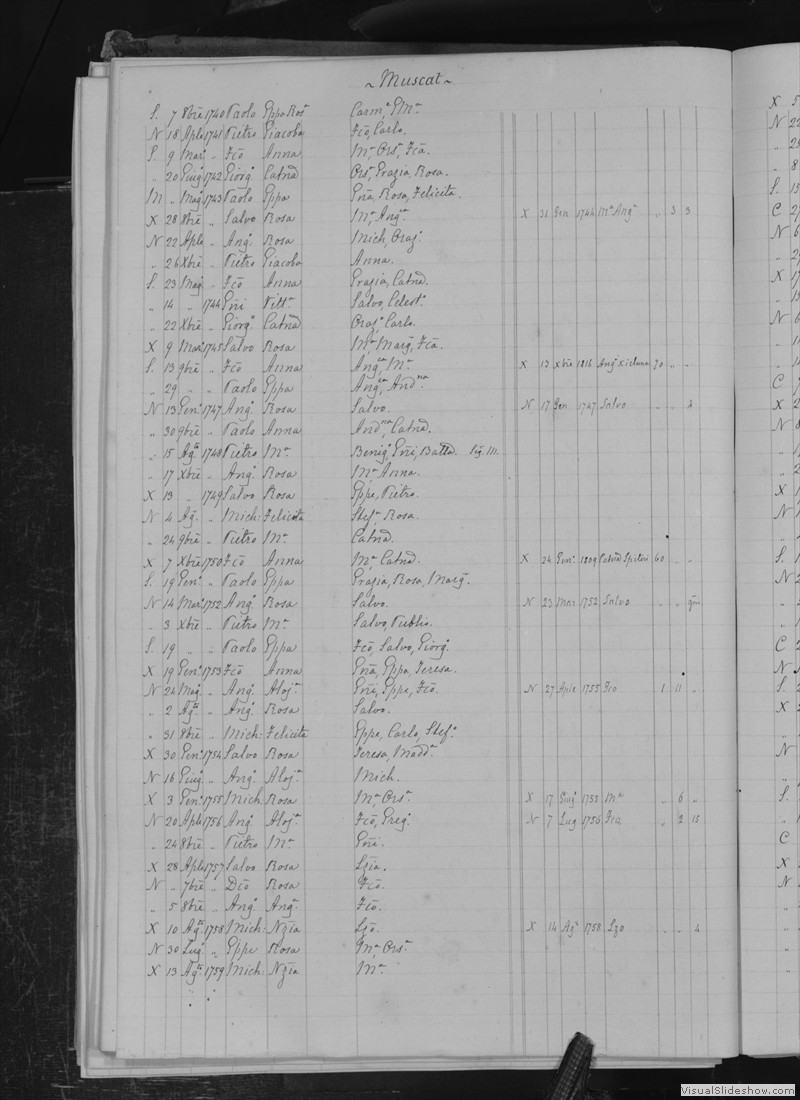 ~ Muscat ~
S. 7 8bre 1740 Paolo Eppa Rosa Carma, E Ma
N 18 Aple 1741 Pietro Giacoba Fco, Carlo.
S. 9 Mar. „ Fco Anna Ma, Orsa, Fca.
„ 20 Giug 1742 Giorgo Catnd Orsa, Grazia, Rosa.
M „ Mag 1743 Paolo Eppa Gna, Rosa, Felicita.
X 28 8bre „ Salvo Rosa Ma Anga X 31 Gen 1744 Ma Anga „ 3 3
N 22 Aple „ Ango Rosa Mich, Orazo
„ 26 Xbre „ Pietro Giacoba Anna.
S. 23 Mag „ Fco Anna Grazia, Catnd.
„ 14 „ 1744 Gni Vitta Salvo, Celesta.
„ 22 Xbre „ Giorgo Catnd Orazo, Carlo.
X 9 Mar 1745 Salvo Rosa Ma, Marga, Fca.
S. 13 9bre „ Fco Anna Angca, Ma X 13 Xbre 1816 Anga Xicluna 70 „ „
„ 29 „ „ Paolo Eppa Angca, Andna
N 13 Gen 1747 Ango Rosa Salvo. N 17 Gen 1747 Salvo „ „ 4
„ 30 9bre „ Paolo Anna Andna, Catnd.
„ 15 Aga 1748 Pietro Ma Benigo, Gni, Batta.
„ 17 Xbre „ Ango Rosa Ma Anna.
X 13 „ 1749 Salvo Rosa Eppe, Pietro.
N 4 Ag. „ Mich: Felicita Stefa Rosa.
„ 24 9bre „ Pietro Ma Catnd.
X 7 Xbre 1750 Fco Anna Ma Catnd. X 24 Gen 1809 Catnd Spiteri 60 „ „
S. 19 Gen „ Paolo Eppa Grazia, Rosa, Marga.
N 14 Mar 1752 Ango Rosa Salvo. N 23 Mar 1752 Salvo „ „ gni
„ 3 Xbre „ Pietro Ma Salvo, Publio.
S. 19 „ „ Paolo Eppa Fco, Salvo, Giorgo.
X 19 Gen 1753 Fco Anna Gna, Eppa, Teresa.
N 24 Mag „ Ango Aloja Gni, Eppe, Fco. N 27 Aple 1755 Fco 1 11 „
„ 2 Aga „ Ango Rosa Salvo.
„ 31 8bre „ Mich: Felicita Eppe, Carlo, Stefo.
X 30 Gen 1754 Salvo Rosa Teresa, Madda
N 16 Giug „ Ango Aloja Mich.
X 3 Gen 1755 Mich Rosa Ma, Orsa. X 17 Giug 1755 Ma „ 6 „
N 20 Aple 1756 Ango Aloja Fco, Grego. N 7 Lug 1756 Fco „ 2 15
„ 24 8bre „ Pietro Ma Gni.
X 28 Aple 1757 Salvo Rosa Lzia.
N „ 7bre „ Dco Rosa Fco.
„ 5 8bre „ Ango Anga Fco.
X 10 Aga 1758 Mich: Nzia Lzo. X 14 Aga 1758 Lzo „ „ 4
N 30 Lug „ Eppe Rosa Ma, Orsa.
X 13 Aga 1759 Mich: Nzia Ma
VisualSlideshow.com